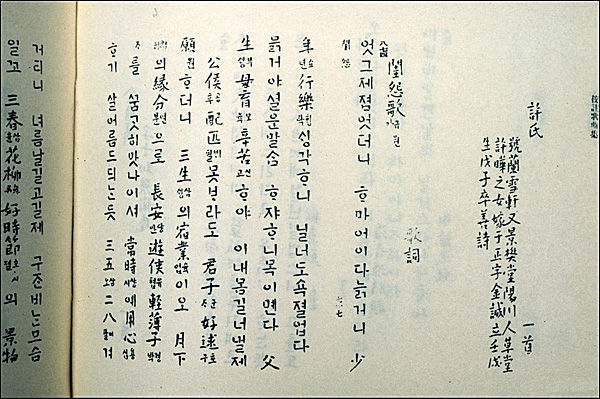 校註歌曲集
許氏 一首
號蘭雪軒又景樊堂陽川人草堂
許曄之女嫁于正字金誠立壬戌
生戊子卒善詩
閨怨歌 歌詞
엇그제졈엇더니 ᄒᆞ마어이다늙거니 少
年行樂싱각ᄒᆞ니 닐너도쇽졀업다
늙거야셜운말ᄉᆞᆷ ᄒᆞ쟈ᄒᆞ니목이멘다 父
生母育辛苦ᄒᆞ야 이내몸길너낼제
公侯配匹못ᄇᆞ라도 君子好逑
願ᄒᆞ더니 三生의宿業이오 月下
의緣分으로 長安遊俠輕薄子
를 ᄭᅮᆷᄀᆞᆺ히맛나이셔 當時예用心
ᄒᆞ기 살어름드듸ᄂᆞᆫ듯 三五二八겨
거리니 녀름날길고길제 구ᄌᆞᆫ비ᄂᆞᆫ므슴
일고 三春花柳好時節의 景物